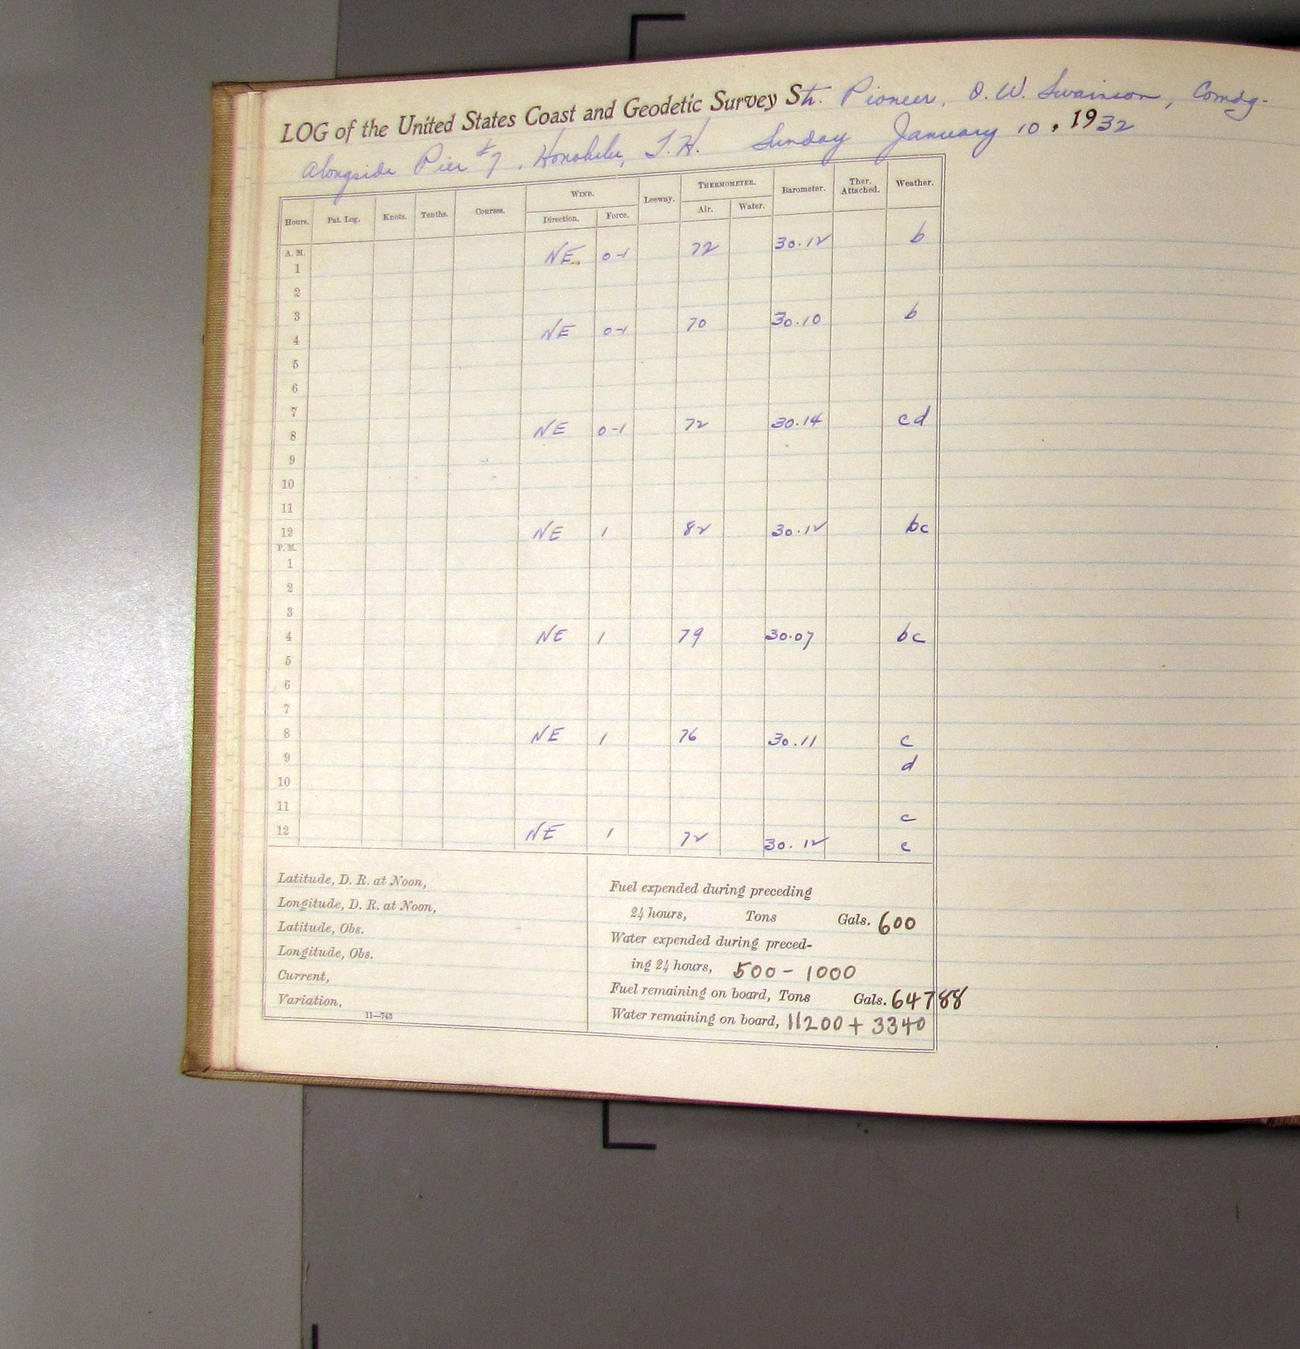 LOG of the United States Coast and Geodetic Survey Str. Pioneer, O. W. Swainson, Comdg.
Alongside Pier #7, Honolulu, T.H. Sunday January 10, 1932
Hours. Pat. Log. Knots. Tenths. Courses. WIND. Leeway. THERMOMETER. Barometer. Ther. Attached. Weather.
Direction. Force. Air. Water.
A. M. NE 0-1 72 30.12 b
1
2
3
NE 0-1 70 30.10 b
4
5
6
7
8 NE 0-1 72 30.14 c d
9
10
11
12 NE 1 82 30.12 bc
P. M.
1
2
3
4 NE 1 79 30.07 bc
5
6
7
8 NE 1 76 30.11 c
9 d
10
11 c
12 NE 1 72 30.12 c
Latitude, D. R. at Noon,
Longitude, D. R. at Noon,
Latitude, Obs.
Longitude, Obs.
Current,
Variation,
11—743
Fuel expended during preceding
24 hours, Tons Gals. 600
Water expended during preced-
ing 24 hours, 500 - 1000
Fuel remaining on board, Tons Gals. 64788
Water remaining on board, 11200 + 3340